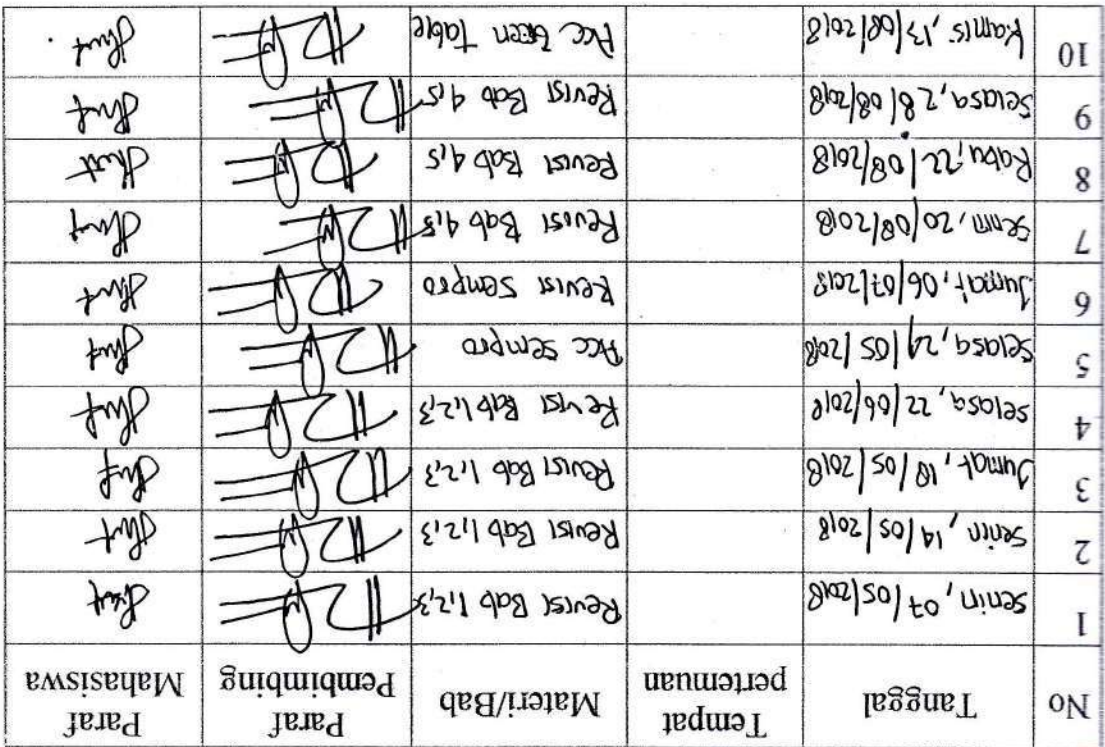 No Tanggal Tempat pertemuan Materi/Bab Paraf Pembimbing Paraf Mahasiswa
1 Senin, 07/05/2018 Revisi Bab 1,2,3
2 Senin, 14/05/2018 Revisi Bab 1,2,3
3 Jumat, 18/05/2018 Revisi Bab 1,2,3
4 Selasa, 22/06/2018 Revisi Bab 1,2,3
5 Selasa, 24/05/2018 Acc Sempro
6 Jumat, 06/07/2018 Revisi Sempro
7 Senin, 20/08/2018 Revisi Bab 4,5
8 Rabu, 22/08/2018 Revisi Bab 4,5
9 Selasa, 28/08/2018 Revisi Bab 4,5
10 Kamis, 13/08/2018 Acc Table